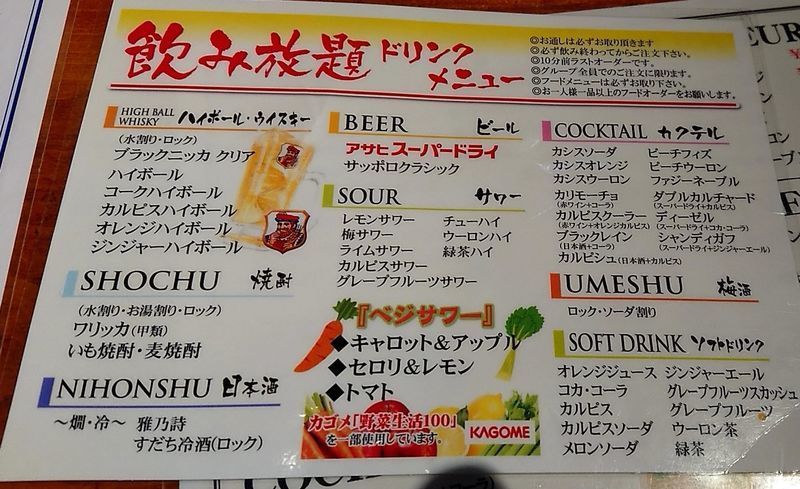 飲み放題 ドリンクメニュー
◎お通しは必ずお取り頂きます
◎必ず飲み終わってからご注文下さい。
◎10分前ラストオーダーです。
◎グループ全員でのご注文に限ります。
◎フードメニューは必ずお取り下さい。
◎お一人様一品以上のフードオーダーをお願いします。
HIGH BALL WHISKY ハイボール・ウイスキー
(水割り・ロック)
ブラックニッカ クリア
ハイボール
コークハイボール
カルピスハイボール
オレンジハイボール
ジンジャーハイボール
SHOCHU 焼酎
(水割り・お湯割り・ロック)
ワリッカ(甲類)
いも焼酎・麦焼酎
NIHONSHU 日本酒
〜燗・冷〜 雅乃詩
すだち冷酒(ロック)
BEER ビール
アサヒスーパードライ
サッポロクラシック
SOUR サワー
レモンサワー チューハイ
梅サワー ウーロンハイ
ライムサワー 緑茶ハイ
カルピスサワー
グレープフルーツサワー
『ベジサワー』
◆キャロット&アップル
◆セロリ&レモン
◆トマト
カゴメ「野菜生活100」
を一部使用しています。
KAGOME
COCKTAIL カクテル
カシスソーダ ピーチフィズ
カシスオレンジ ピーチウーロン
カシスウーロン ファジーネーブル
カリモーチョ ダブルカルチャード
(赤ワイン+コーラ) (スーパードライ+カルピス)
カルピスクーラー ディーゼル
(赤ワイン+オレンジカルピス) (スーパードライ+コカ・コーラ)
ブラックレイン シャンディガフ
(日本酒+コーラ) (スーパードライ+ジンジャーエール)
カルピシュ(日本酒+カルピス)
UMESHU 梅酒
ロック・ソーダ割り
SOFT DRINK ソフトドリンク
オレンジジュース ジンジャーエール
コカ・コーラ グレープフルーツスカッシュ
カルピス グレープフルーツ
カルピスソーダ ウーロン茶
メロンソーダ 緑茶